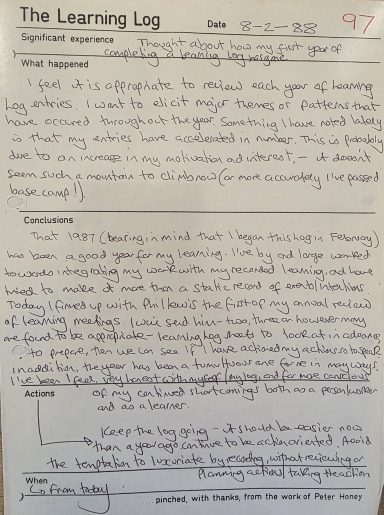 The Learning Log
Date 8-2-88
97
Significant experience Thought about how my first year of
completing a learning log has gone
What happened
I feel it is appropriate to review each year of learning
log entries. I want to elicit major themes or patterns that
have occured throughout the year. Something I have noted lately
is that my entries have accelerated in number. This is probably
due to an increase in my motivation and interest, - it doesn't
seem such a mountain to climb now (or more accurately I've passed
base camp!).
Conclusions
That 1987 (bearing in mind that I began this log in February)
has been a good year for my learning. I've by and large worked
towards integrating my work with my recorded learning, and have
tried to make it more than a static record of events/intentions
Today I firmed up with Phil Lewis the first of my annual review
of learning meetings. I will send him - two, three or however many
are found to be appropriate - learning log sheets to look at in advance
to prepare, then we can see if I have achieved my actions so to speak
In addition, the year has been a tumultuous one for me in many ways.
I've been I feel very honest with myself/my log, and far more conscious
Actions of my continued shortcomings both as a person/worker
and as a learner.
Keep the log going - it should be easier now
than a year ago continue to be action oriented. Avoid
the temptation to luxuriate by recording, without reviewing or
planning action/taking the action
When
from today
...pinched, with thanks, from the work of Peter Honey